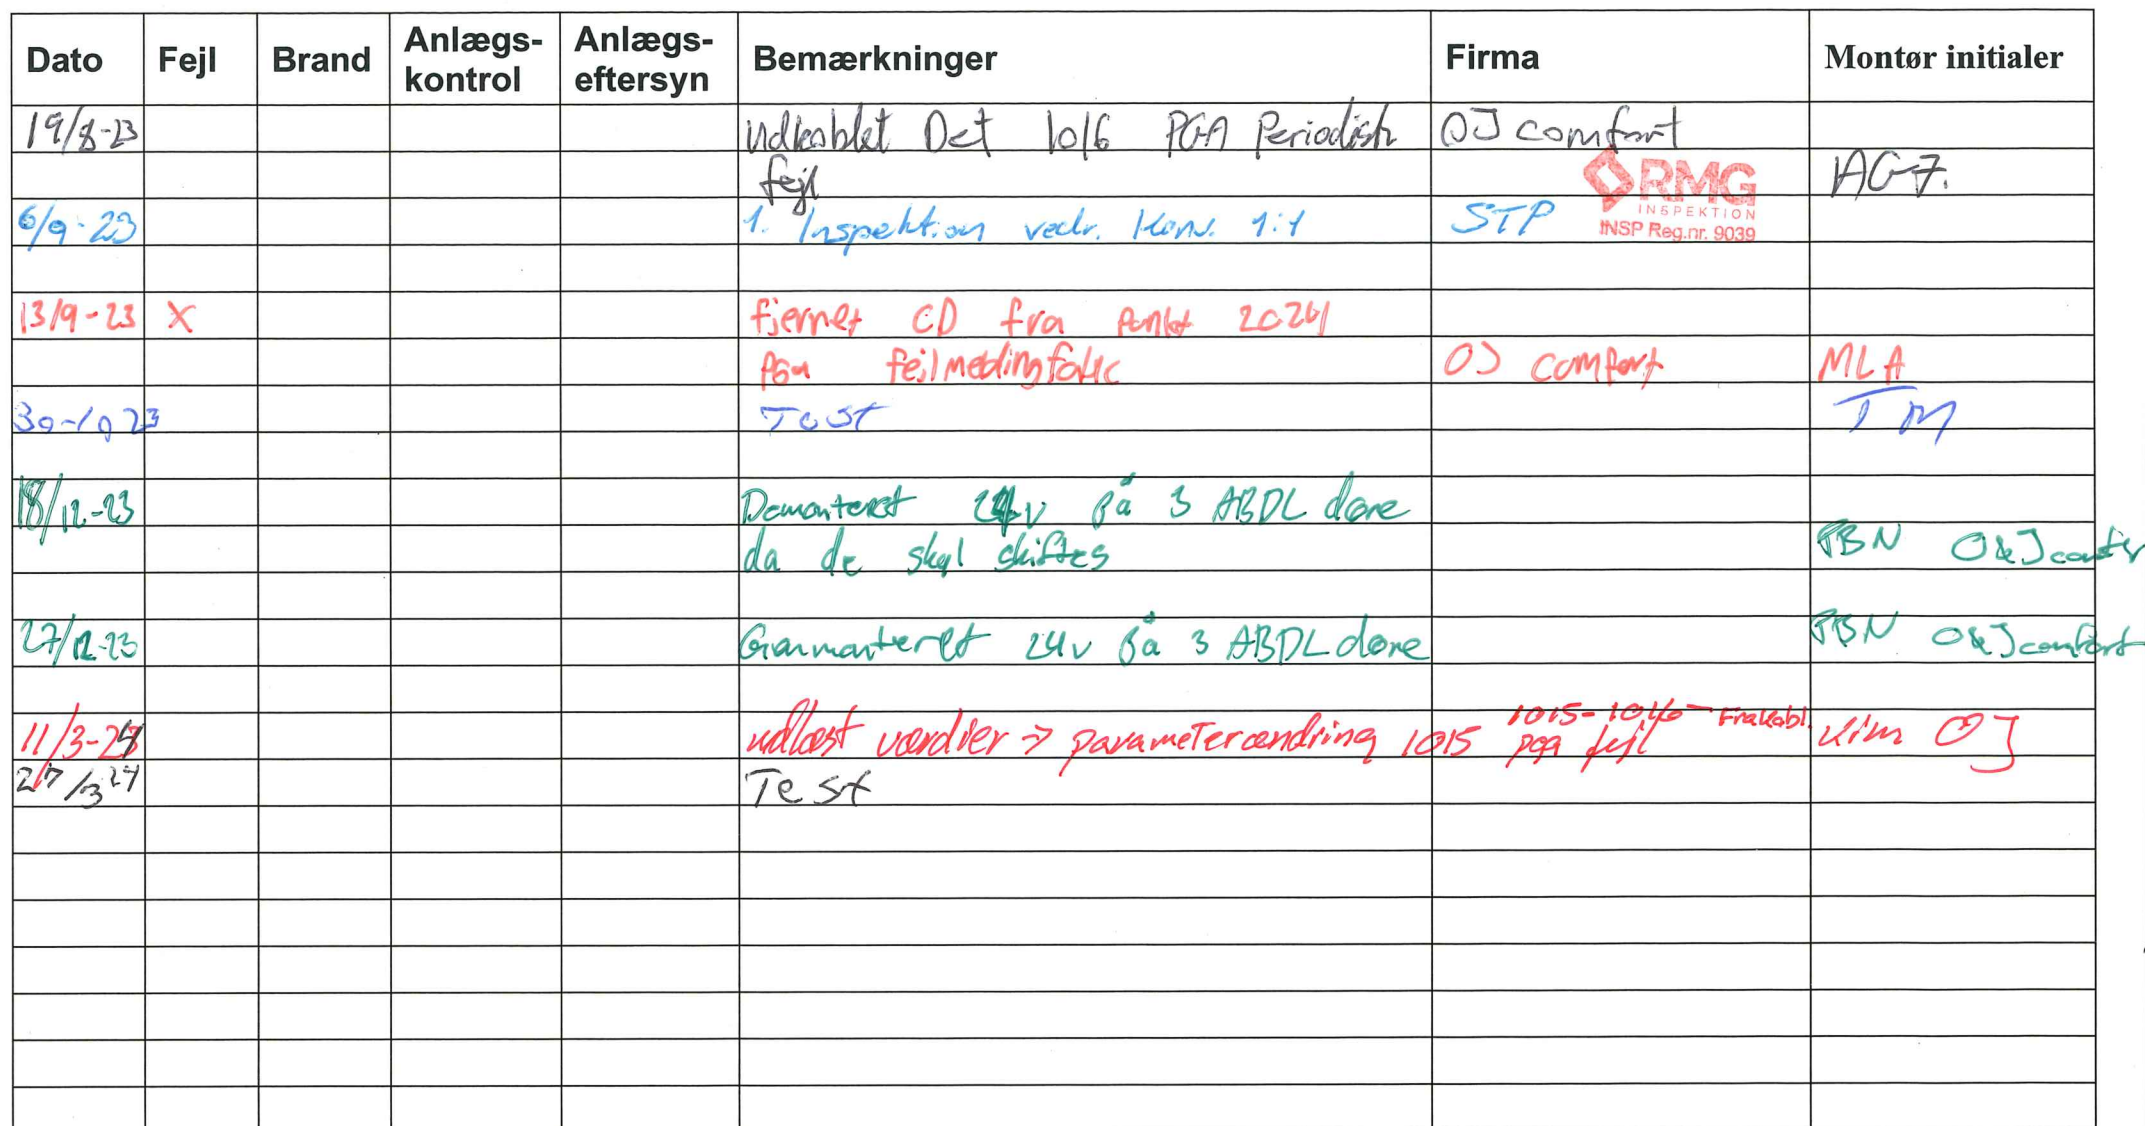 Dato Fejl Brand Anlægs-kontrol Anlægs-eftersyn Bemærkninger Firma Montør initialer
19/8-23 Udkoblet Det 1016 PGA Periodisk OJ comfort
fejl AG7.
RMG
INSPEKTION
INSP Reg.nr. 9039
6/9-23 1. Inspektion vedr. Konv. 1:1 STP
13/9-23 X fjernet CD fra Punkt 2024
PGA fejlmelding OJ comfort MLA
30-10 23 Test TM
18/12-23 Demonteret 24v på 3 ABDL døre
da de skal skiftes PBN O&J comfor
27/12-23 Genmonteret 24v på 3 ABDL døre PBN O&J comfort
1015-1016 - Frakobl.
11/3-24 udlæst værdier → parameterændring 1015 pga fejl Kim OJ
27/3 24 Test